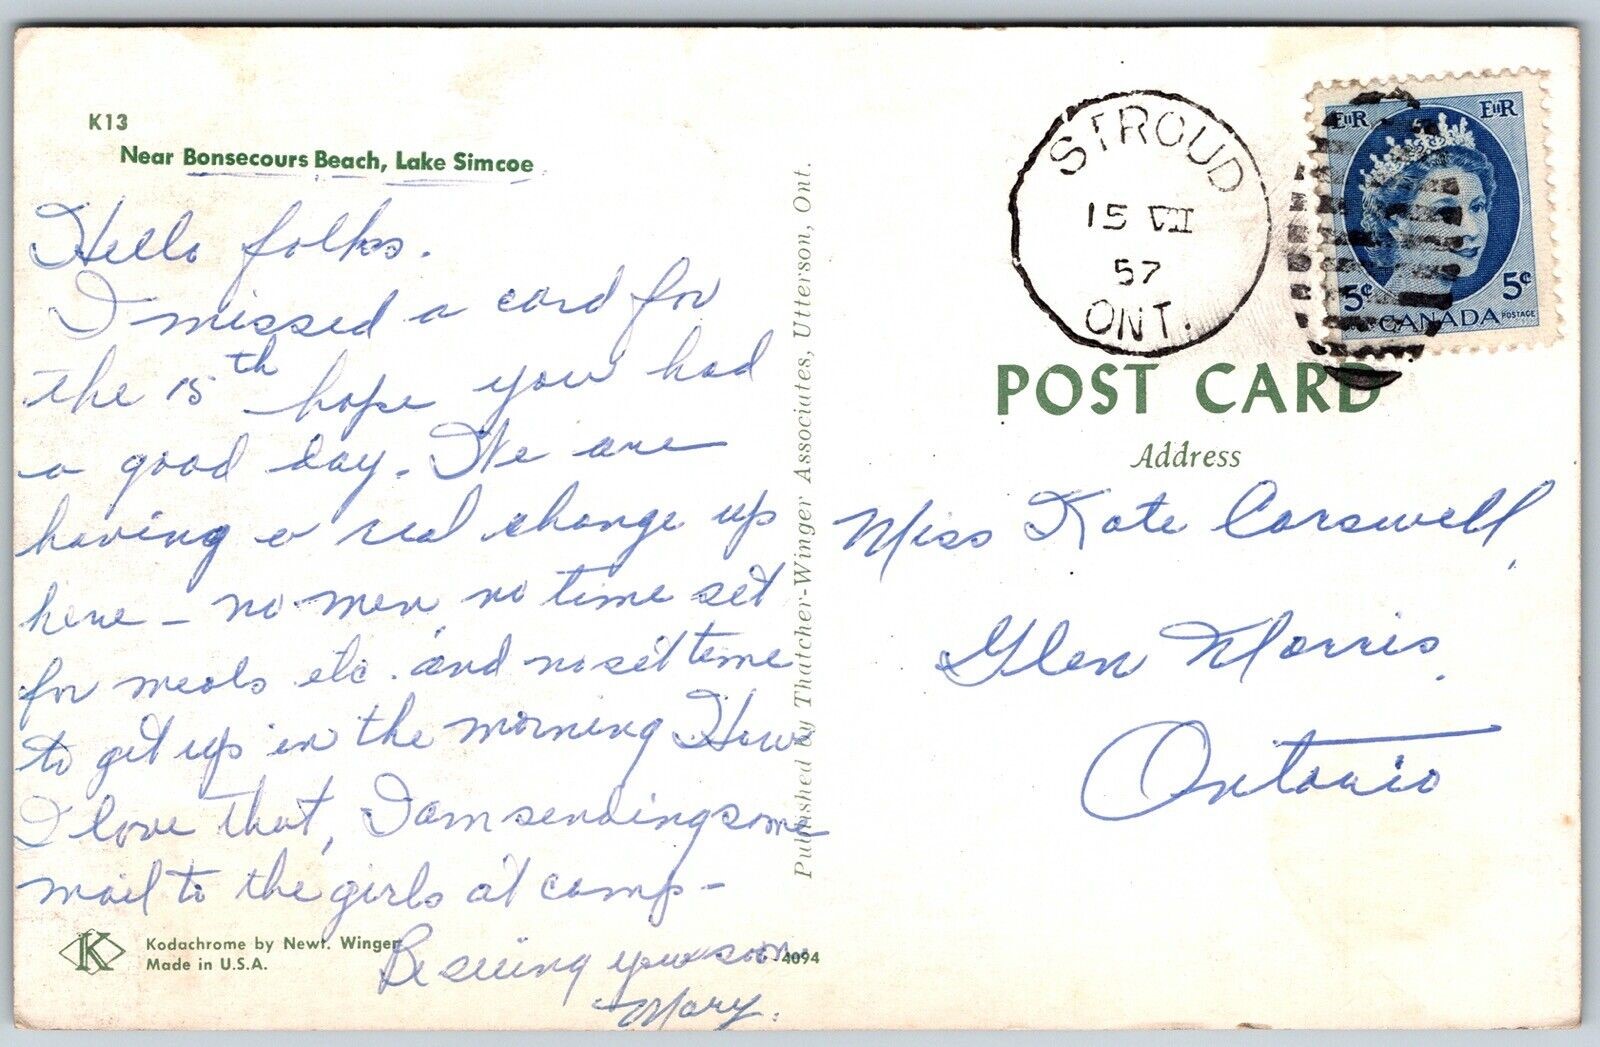 K13
Near Bonsecours Beach, Lake Simcoe
Hello folks.
I missed a card for
the 15th hope you had
a good day. We are
having a real change up
here - no men, no time set
for meals etc. and no set time
to get up in the morning How
I love that, I am sending some
mail to the girls at camp -
Be seeing you soon
Mary.
K
Kodachrome by Newt. Winger
Made in U.S.A.
-4094
Published by Thatcher-Winger Associates, Utterson, Ont.
STROUD
15 VII
57
ONT.
EIIR EIIR
5¢ 5¢
CANADA POSTAGE
POST CARD
Address
Miss Kate Carswell,
Glen Morris.
Ontario